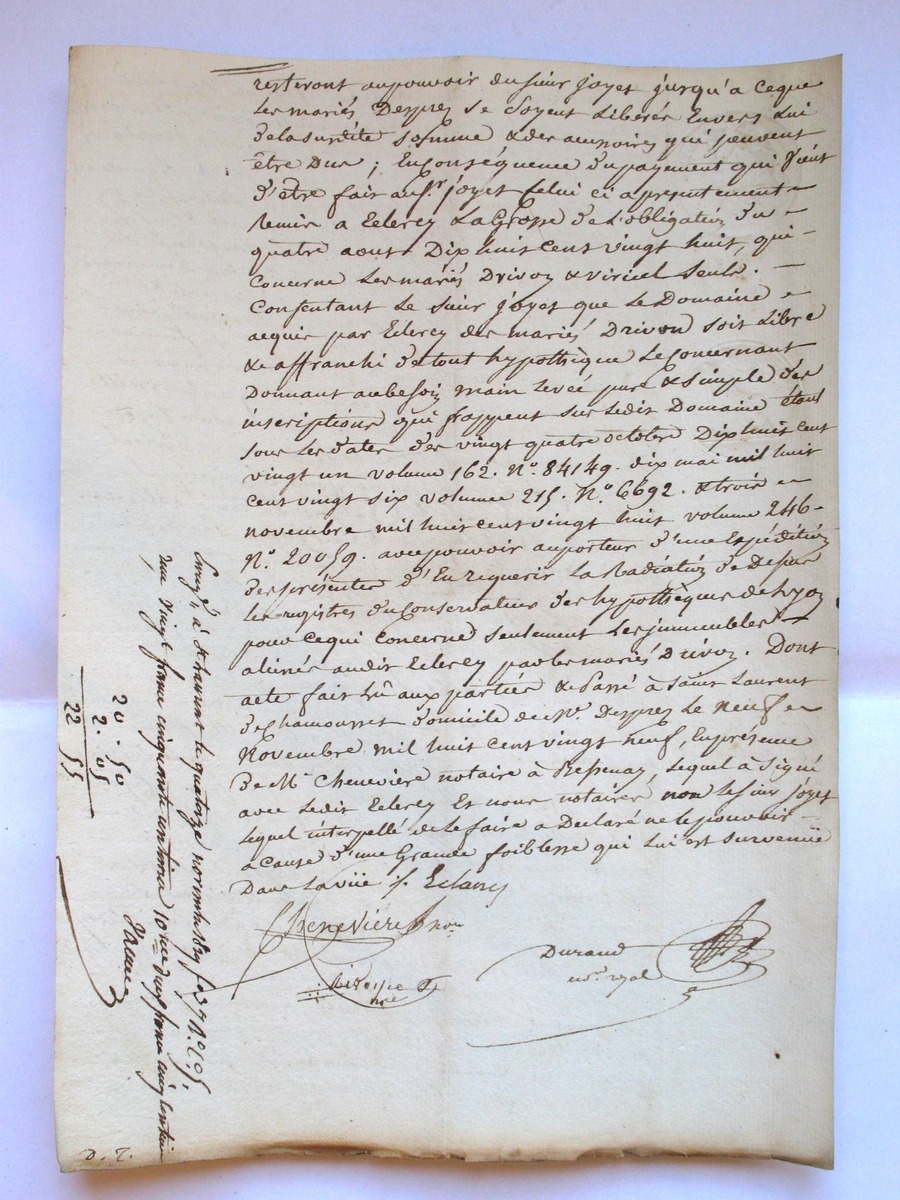 resteront au pouvoir du sieur joyet jusqu'a ceque
les mariés Desprez se soyent Libérés Envers Lui
de la susdite somme & des accessoires qui peuvent
être Dus ; En conséquence du payement qui Vient
d'être fait au Sr. joyet Celui ci a presentement
Remis a Eclercy La Grosse de L'obligation du
quatre aout Dix huit cent vingt huit, qui
concerne Les mariés Drivon & viricel seuls.
Consentant Le sieur joyet que Le Domaine
acquis par Eclercy des mariés Drivon soit Libre
& affranchi de tout hypothèque Le Concernant
Donnant au besoin main levée pure & simple des
inscriptions qui frappent sur Ledit Domaine étant
sous les dates des vingt quatre octobre Dix huit cent
vingt un volume 162. No. 84149. dix mai mil huit
cent vingt six volume 215. No. 6692. & trois
novembre mil huit cent vingt huit volume 246
No. 20059. avec pouvoir au porteur d'une Expédition
des présentes d'En requerir La Radiation de Dessus
les registres du Conservateur des hypothèques de Lyon
pour ce qui Concerne seulement Les immeubles
aliénés audit Eclercy par les mariés Drivon. Dont
acte fait Lû aux parties & Passé à saint Laurent
de chamousset domicile de Desprez Le Neuf
Novembre mil huit cent vingt neuf, En présence
de Me Chenevière notaire à Bessenay, Lequel à Signé
avec Ledit Eclercy Et nous notaires non Le sieur joyet
Lequel interpellé de Le faire a Declaré ne le pouvoir
a Cause d'une Grande foiblesse qui Lui est survenüe
Dans La vüe Eclercy
Chenevière nore
Durand
nore royal
Enregé à St Laurent le quatorze novembre 1829
Reçu vingt francs cinquante centimes 10me deux francs cinq centimes
20. 50
2. 05
22 55
D. T.